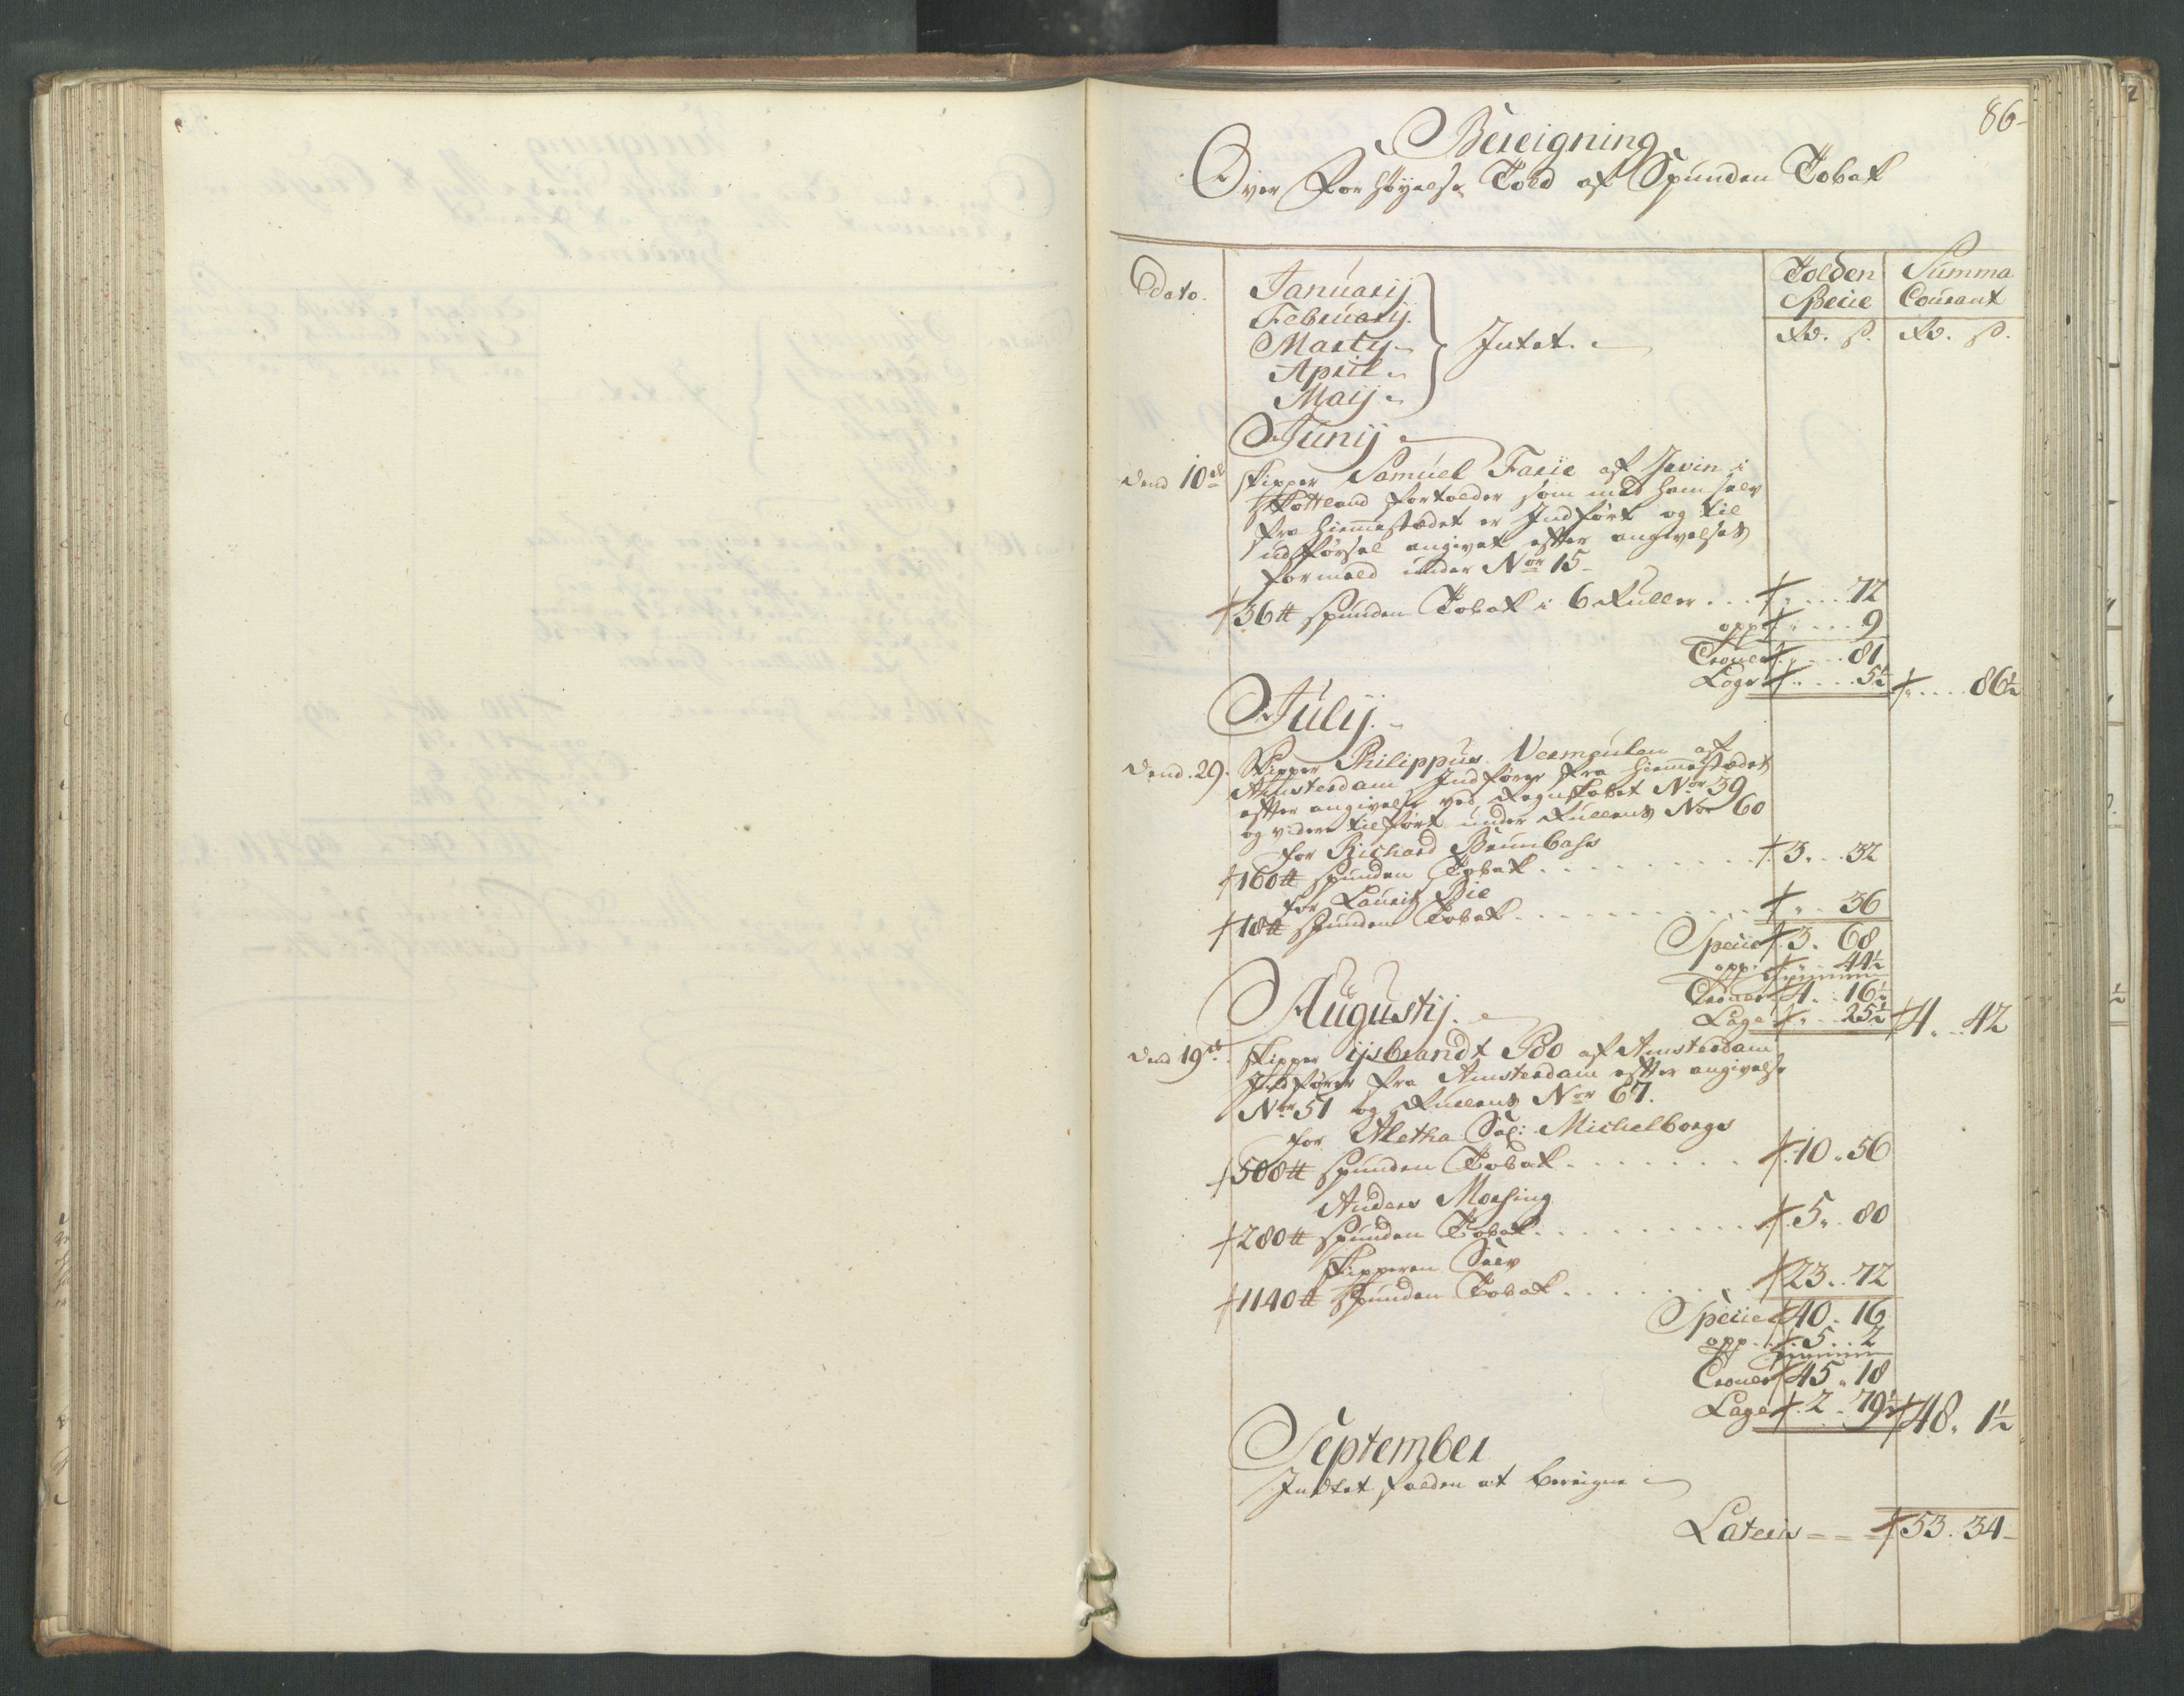 86
Bereigning
Over Forhøyelse Told af Spunden Tobak
Dato.
Tolden Specie
Summa Courant
Rd. s.
Rd. s.
Januarij
Februarij
Marty
April
Maij
Intet.
Junij
Dend 10de Skipper Samuel Farie af Irvin i
Skottland fortolder som med ham selv
fra hiemmestædet er Indført og til
udførsel angivet efter angivelses
formeld under Nor 15
36 ℔ spunden Tobak i 6 Ruller . . . . 72
opp . . . 9
Croner . . . 81
Lage . . . 5½ . . . . 86½
Julij
Dend. 29. Skipper Philippus Vermeulen af
Amsterdam Indfører fra hiemmestædet
efter angivelse ved Regnskabet Nor 39
og videre tilført under Rullens Nor 60
for Richard Brunbahs
160 ℔ spunden Tobak . . . . 3. 32
for Laurits Bie
18 ℔ spunden Tobak . . . . 36
Specie 3. 68
opp. 44½
Croner 4. 16½
Lage . . 25½ 4. 42
Augustij
Dend 19de Skipper ijsbrandt Poo af Amsterdam
Indfører fra Amsterdam efter angivelse
Nor 51 og Rullens Nor 67.
for Aletha Sal: Michelborgs
508 ℔ spunden Tobak . . . . 10. 56
Anders Morsing
280 ℔ spunden Tobak . . . . 5. 80
Skipperen Selv
1140 ℔ spunden Tobak . . . . 23. 72
Specie 40. 16
opp. 5. 2
Croner 45. 18
Lage 2. 79½ 48. 1½
September
Intet falden at bereigne
Lateris = = 53. 34